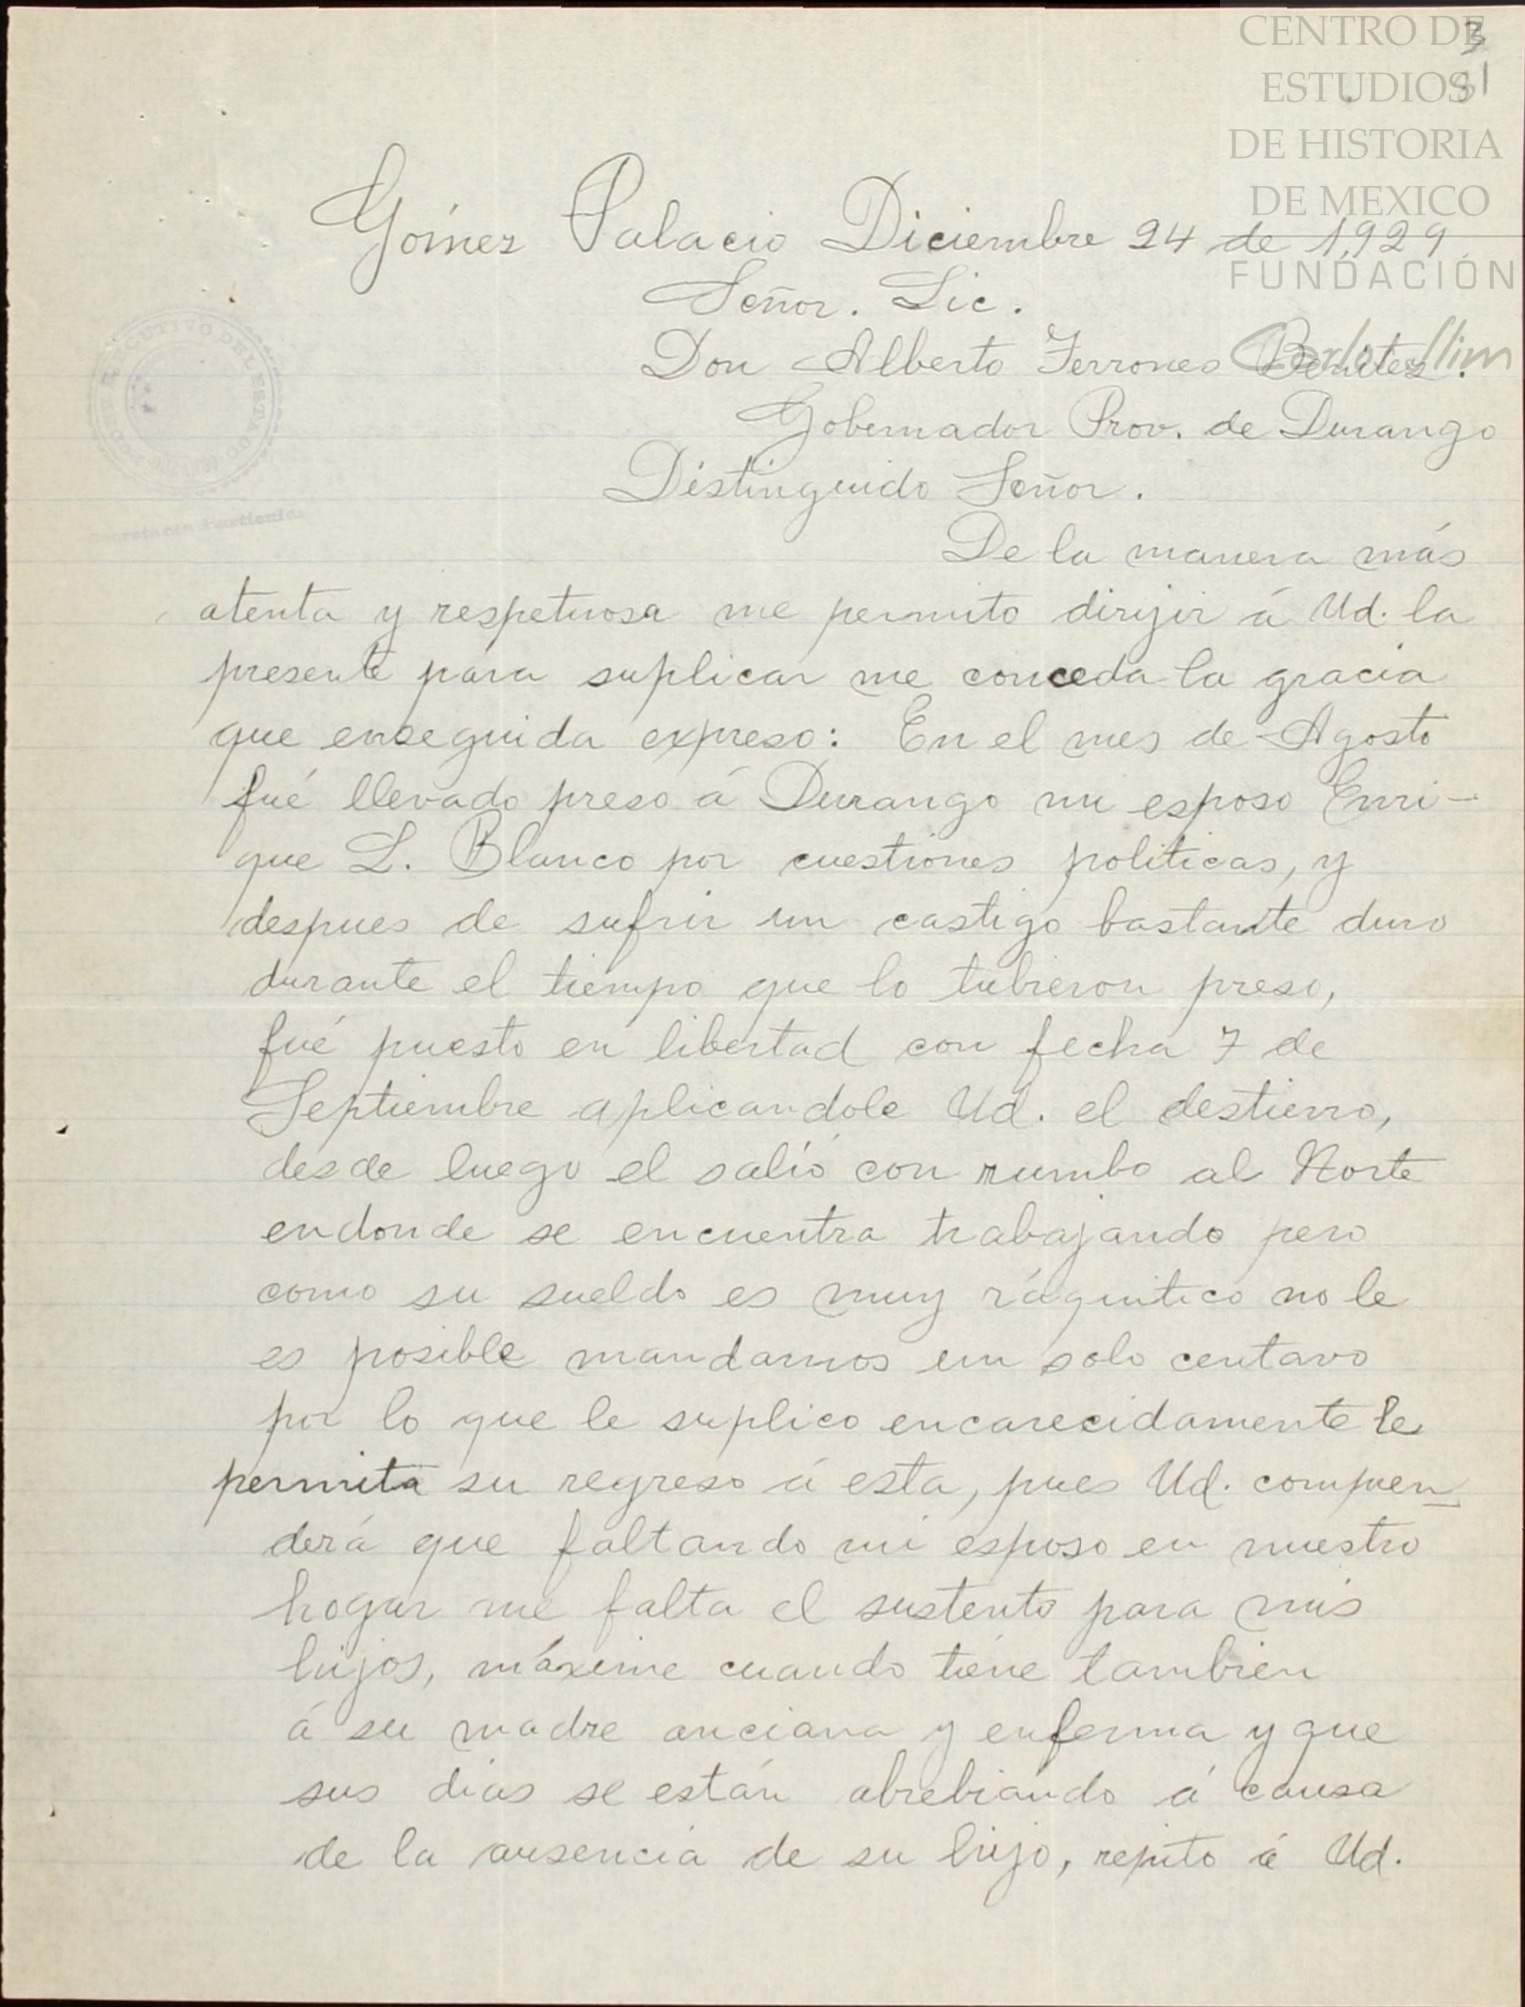 CENTRO DE
ESTUDIOS
DE HISTORIA
DE MEXICO
FUNDACIÓN
Gómez Palacio Diciembre 24 de 1,929
Señor. Lic.
Don Alberto Terrones Benitez.
Gobernador Prov. de Durango
Distinguido Señor.
De la manera más
atenta y respetuosa me permito dirijir á Ud. la
presente para suplicar me conceda la gracia
que enseguida expreso: En el mes de Agosto
fué llevado preso á Durango mi esposo Enri-
que L. Blanco por cuestiones politicas, y
despues de sufrir un castigo bastante duro
durante el tiempo que lo tubieron preso,
fué puesto en libertad con fecha 7 de
Septiembre aplicandole Ud. el destierro,
desde luego el salió con rumbo al Norte
endonde se encuentra trabajando pero
como su sueldo es muy ráquitico no le
es posible mandarnos un solo centavo
por lo que le suplico encarecidamente le
permita su regreso á esta, pues Ud. compren
derá que faltando mi esposo en nuestro
hogar me falta el sustento para mis
hijos, máxime cuando tiene tambien
á su madre anciana y enferma y que
sus dias se están abrebiando á causa
de la ausencia de su hijo, repito á Ud.